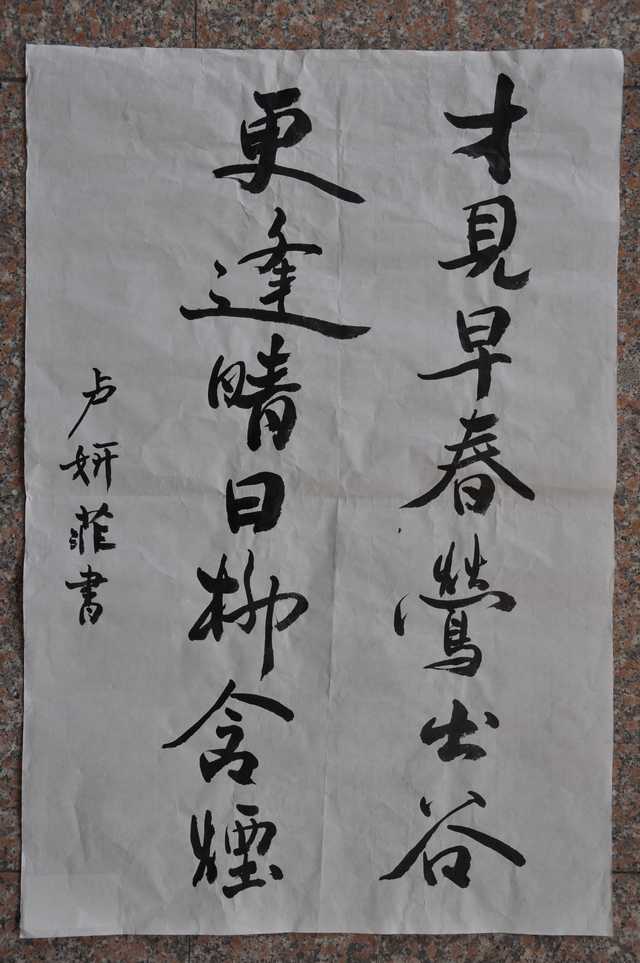 才見早春鶯出谷
更逢晴日柳含煙
卢妍菲書